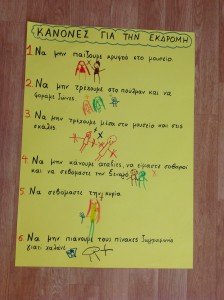 ΚΑΝΟΝΕΣ ΓΙΑ ΤΗΝ ΕΚΔΡΟΜΗ
1. Να μην παίζουμε κρυφτό στο μουσείο.
2. Να μην τρέχουμε στο πούλμαν και να
φοράμε ζώνες.
3. Να μην τρέχουμε μέσα στο μουσείο και στις
σκάλες
4. Να μην κάνουμε αταξίες, να είμαστε σοβαροί
και να σεβόμαστε την ξεναγό.
5. Να σεβόμαστε την κυρία.
6. Να μην πιάνουμε τους πίνακες ζωγραφικής
γιατί χαλάνε